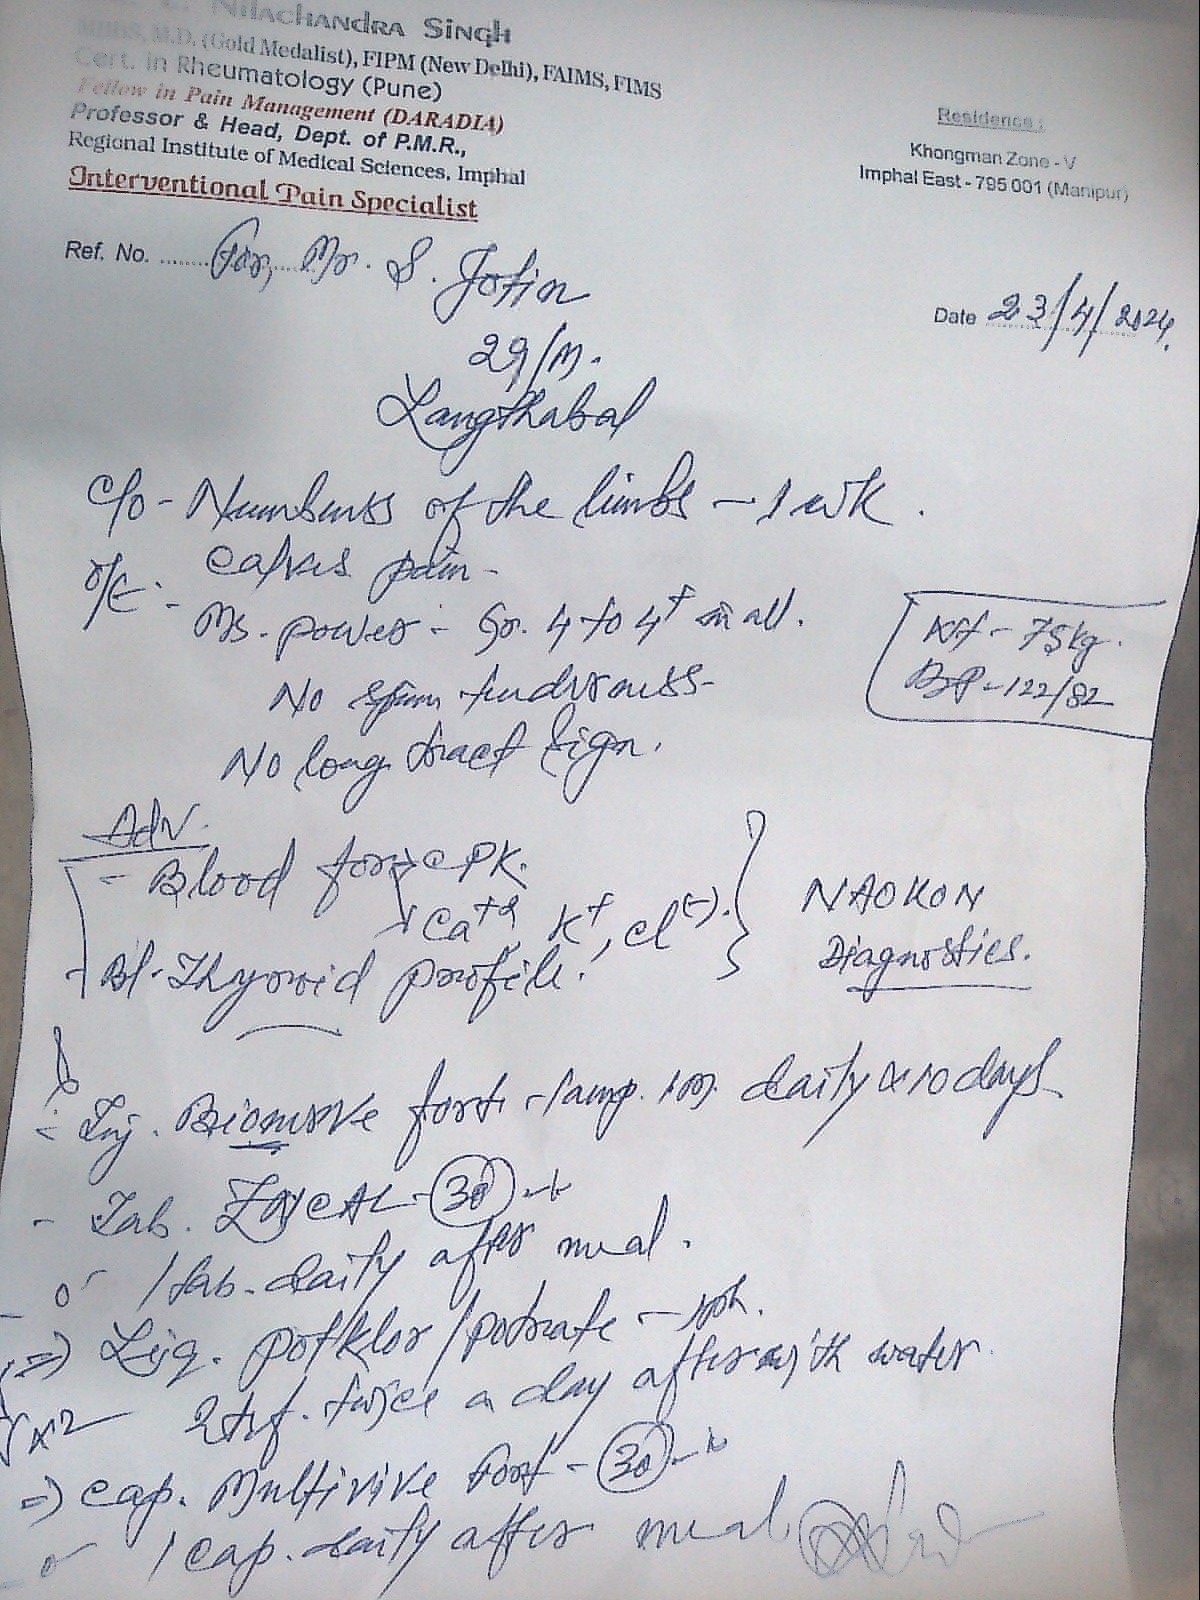 Nilachandra Singh
MBBS, M.D. (Gold Medalist), FIPM (New Delhi), FAIMS, FIMS
Cert. in Rheumatology (Pune)
Fellow in Pain Management (DARADIA)
Professor & Head, Dept. of P.M.R.,
Regional Institute of Medical Sciences, Imphal
Interventional Pain Specialist
Residence :
Khongman Zone - V
Imphal East - 795 001 (Manipur)
Ref. No. ........ For, Mr. S. Jotin
Date 23/4/2024
29/M.
Langthabal
C/o - Numbness of the limbs - 1 wk.
calves pain -
O/E - Ms. power - Gr. 4 to 4+ in all.
Wt - 75kg.
BP - 122/82
No spin tenderness -
No long tract sign.
Adv.
- Blood for → CPK.
Ca+2, K+, Cl(-).
- Bl. Thyroid profile.
NAOKON
Diagnostics.
- Inj. Bionerve forte - 1 amp. 1M. daily x 10 days
- Tab. ZOYCAL - 30
1 tab. daily after meal.
=> Liq. potklor / potrate -
x 2 2 tsf. twice a day after with water.
=> Cap. Multivive Fort - 30
1 cap. daily after meal